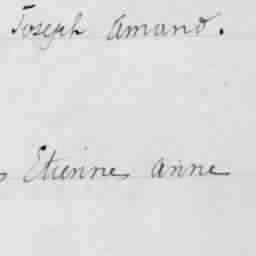 Joseph Amand.
Etienne Anne